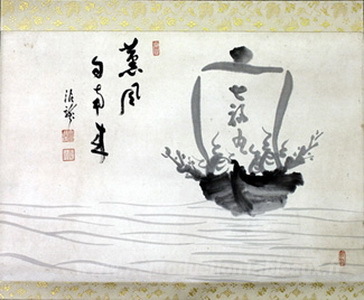 七福丸
薫風
自南来